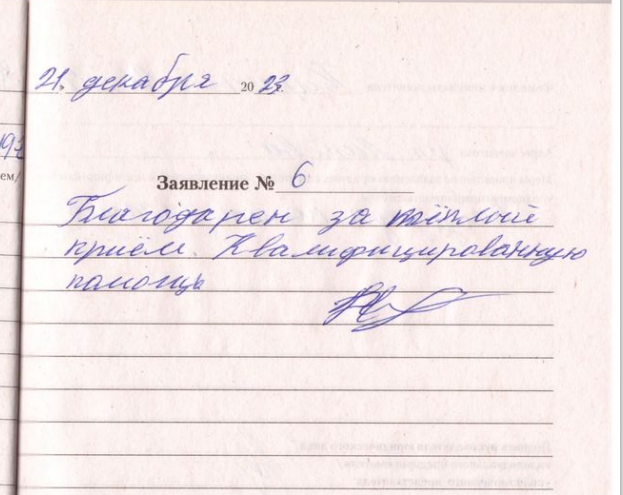 21. декабря 2023.
Заявление № 6
Благодарен за тёплый
приём. Квалифицированную
помощь